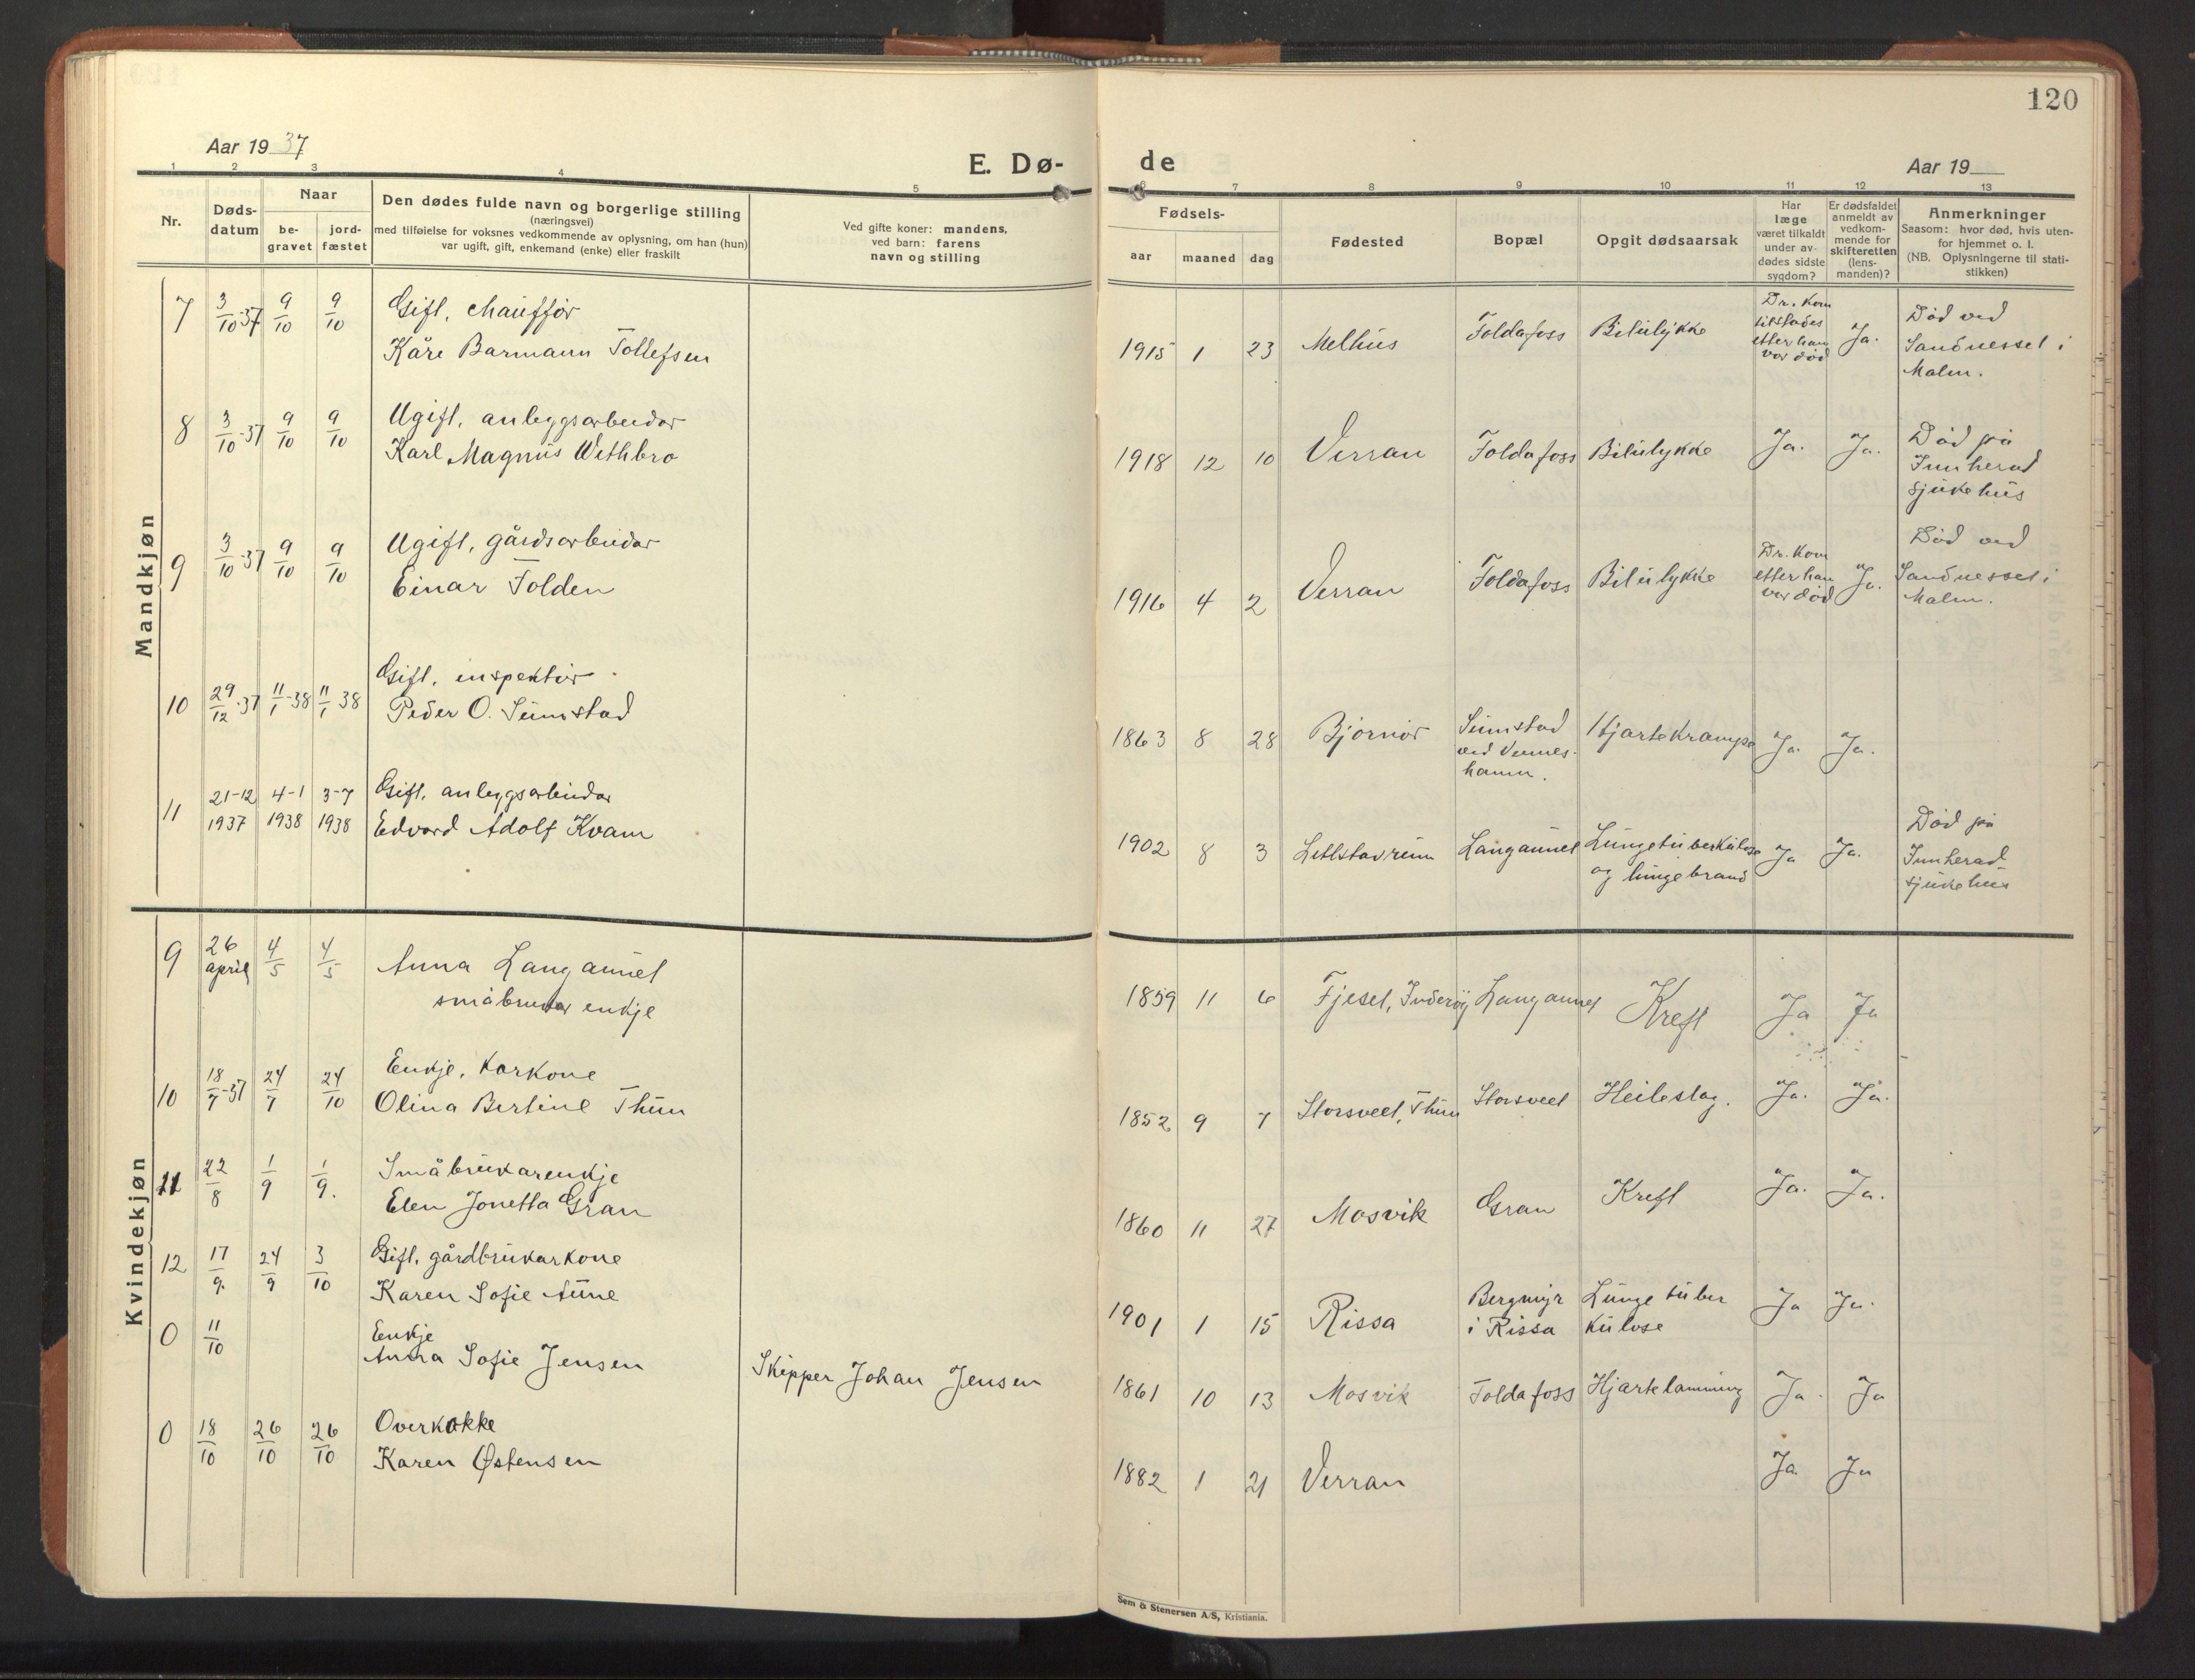 120
Aar 1937
E. Dø-
de
Aar 19
1 2 3 4 5 6 7 8 9 10 11 12 13
Nr.
Døds-
datum
Naar
be-
gravet
jord-
fæstet
Den dødes fulde navn og borgerlige stilling
(næringsvei)
med tilføielse for voksnes vedkommende av oplysning, om han (hun)
var ugift, gift, enkemand (enke) eller fraskilt
Ved gifte koner: mandens,
ved barn: farens
navn og stilling
Fødsels-
aar maaned dag
Fødested
Bopæl
Opgit dødsaarsak
Har
læge
været tilkaldt
under av-
dødes sidste
sygdom?
Er dødsfaldet
anmeldt av
vedkom-
mende for
skifteretten
(lens-
manden)?
Anmerkninger
Saasom: hvor død, hvis uten-
for hjemmet o. l.
(NB. Oplysningerne til stati-
stikken)
Mandkjøn
7 3/10-37 9/10 9/10 Gift, chauffør
Kåre Barmann Tollefsen
1915 1 23 Melhus Foldafoss Bilulykke
Dr. kom
tilstades
etter han
var död
Ja.
Död ved
Sandnesset i
Malm.
8 3/10-37 9/10 9/10 Ugift, anleggsarbeidar
Karl Magnus Wethbro
1918 12 10 Verran Foldafoss Bilulykke Ja. Ja.
Död på
Innherad
sjukehus
9 3/10-37 9/10 9/10 Ugift, gårdsarbeidar
Einar Folden
1916 4 2 Verran Foldafoss Bilulykke
Dr. kom
etter han
var död
Ja.
Död ved
Sandnesset i
Malm.
10 29/12-37 11/1-38 11/1 38 Gift, inspektör
Peder O. Sumstad
1863 8 28 Bjørnör
Sumstad
ved Vennes-
hamn.
Hjartekrampe Ja. Ja.
11 21-12 1937 4-1 1938 3-7 1938 Gift, anleggsarbeidar
Edvard Adolf Kvam
1902 8 3 Letlstavrum Langaunet
Lungetuberkulose
og lungebrand
Ja Ja.
Död på
Innherad
sjukehus
Kvindekjøn
9 26 april 4/5 4/5 Anna Langaunet
småbrukar enkje
1859 11 6 Fjeset, Inderøy Langaunet Kreft Ja Ja
10 18/7-37 24/7 24/10 Enkje, karkone
Olina Bertine Thun
1852 9 7 Storsveet, Thun Storsveet Heileslag. Ja. Ja.
11 22/8 1/9 1/9. Småbrukarenkje
Elen Jonetta Gran
1860 11 27 Mosvik Gran Kreft Ja. Ja.
12 17/9. 24/9 3/10 Gift, gårdbrukarkone
Karen Sofie Aune
1901 1 15 Rissa
Bergmyr
i Rissa
Lunge tuber
kulose
Ja Ja.
0 11/10 Enkje
Anna Sofie Jensen
Skipper Johan Jensen
1861 10 13 Mosvik Foldafoss Hjartelamming Ja. Ja
0 18/10 26/10 26/10 Overkokke
Karen Østensen
1882 1 21 Verran Ja. Ja
Sem & Stenersen A/S, Kristiania.